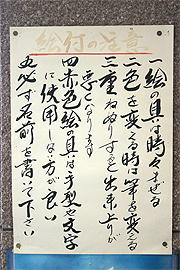 絵付の注意
一 絵の具は時々まぜる
二 色を変える時は筆も変える
三 重ねぬりすると出来上りが
悪くなります
四 赤色絵の具は手型や文字
に使用しる方が良い
五 必ず名前を書いて下さい